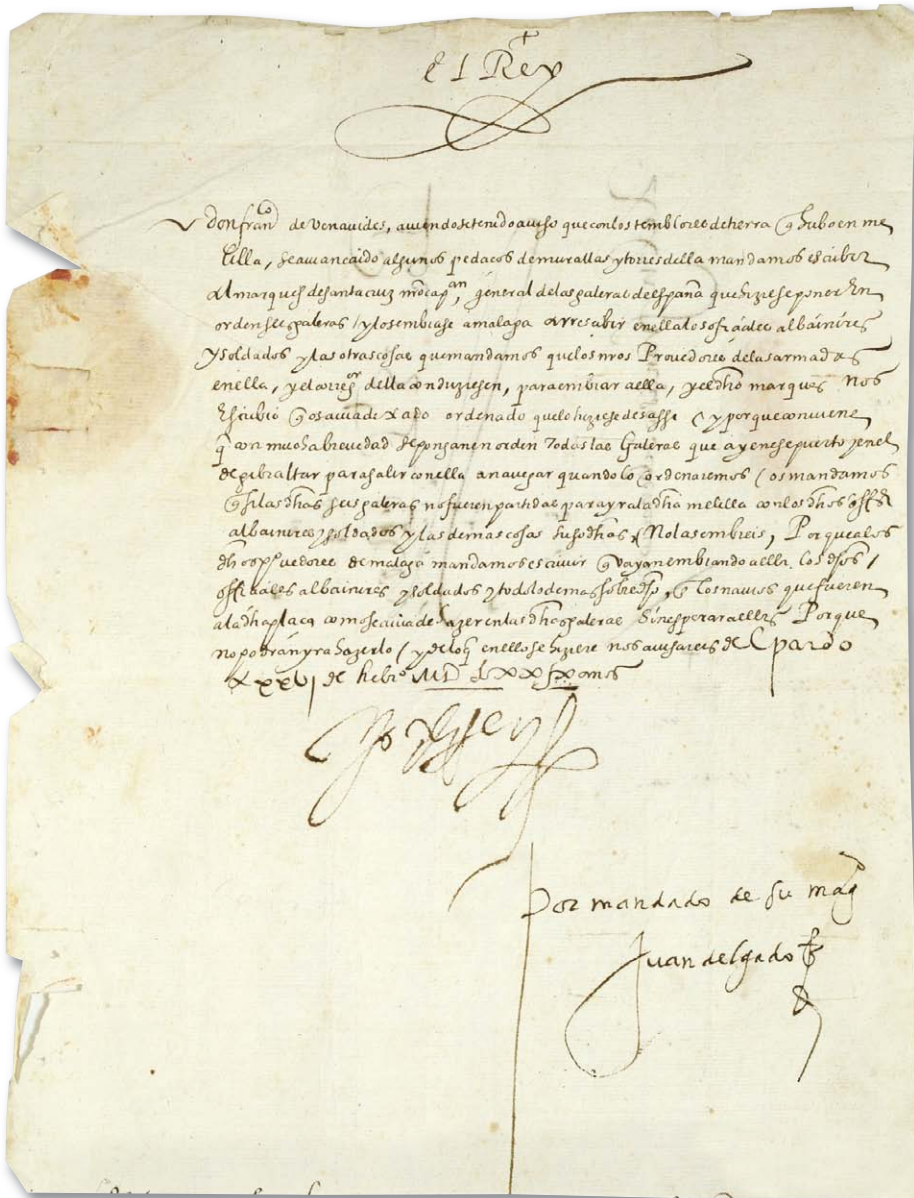 El Rey
don fran^co de Venavides, aviendose tenido aviso que con los temblores de tierra q hubo en me
lilla, se avian caido algunos pedaços de murallas y torres della mandamos escribir
al marques de santa cruz nro cap^an, general de las galeras de españa que hiziese poner en
orden seis galeras / y los embiase a malaga a rresçibir en ella los ofiçiales albañires
y soldados y las otras cosas que mandamos que los nros Provedores de las armadas
en ella, y el corre^or della conduziesen, para embiar a ella, y el dho marques nos
escribio q os avia dexado ordenado que lo hiziesedes assi / y porque conviene
q con mucha brevedad se pongan en orden todas las Galeras que ay en ese puerto y en el
de gibraltar para salir con ella a navegar quando lo ordenaremos / os mandamos
q si las dhas seis galeras no fueren partidas para yr a la dha melilla con los dhos offi^es
albañires y soldados y las demas cosas susodhas, No las embieis, Porque a los
dhos p^rvedores de malaga mandamos escrivir q vayan embiando a ella los dhos /
offiçiales albañires y soldados y todo lo demas sobre dho, en los navios que fueren
a la dha plaça como se avia de hazer en las dhas galeras sin esperar a ellas Porque
no podran yr a hazerlo / y de lo q en ello se hiziere nos avisareis del pardo
a xxvj de hebr^o MD Lxxix años
Yo el Rey
Por mandado de su mag^d
Juan delgado